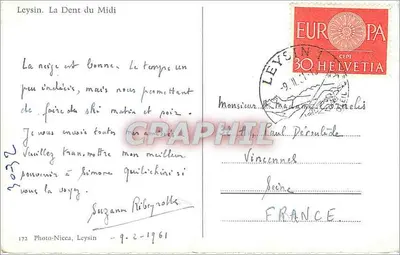 Leysin. La Dent du Midi
EUROPA
CEPT
30 HELVETIA
LEYSIN 1
-9.II.61
La neige est bonne. Le temps un
peu indécis, mais nous permettant
de faire du ski matin et soir.
Je vous envoie toute mon
Veuillez transmettre mon meilleur
souvenir à Simone Quilichini si
vous la voyez.
Suzanne Ribeyrolles
9-2-1961
3092
Monsieur et Madame Cornelis
Paul Déroulède
Vincennes
Seine
FRANCE.
172 Photo-Nicca, Leysin
CPAPHIL.com